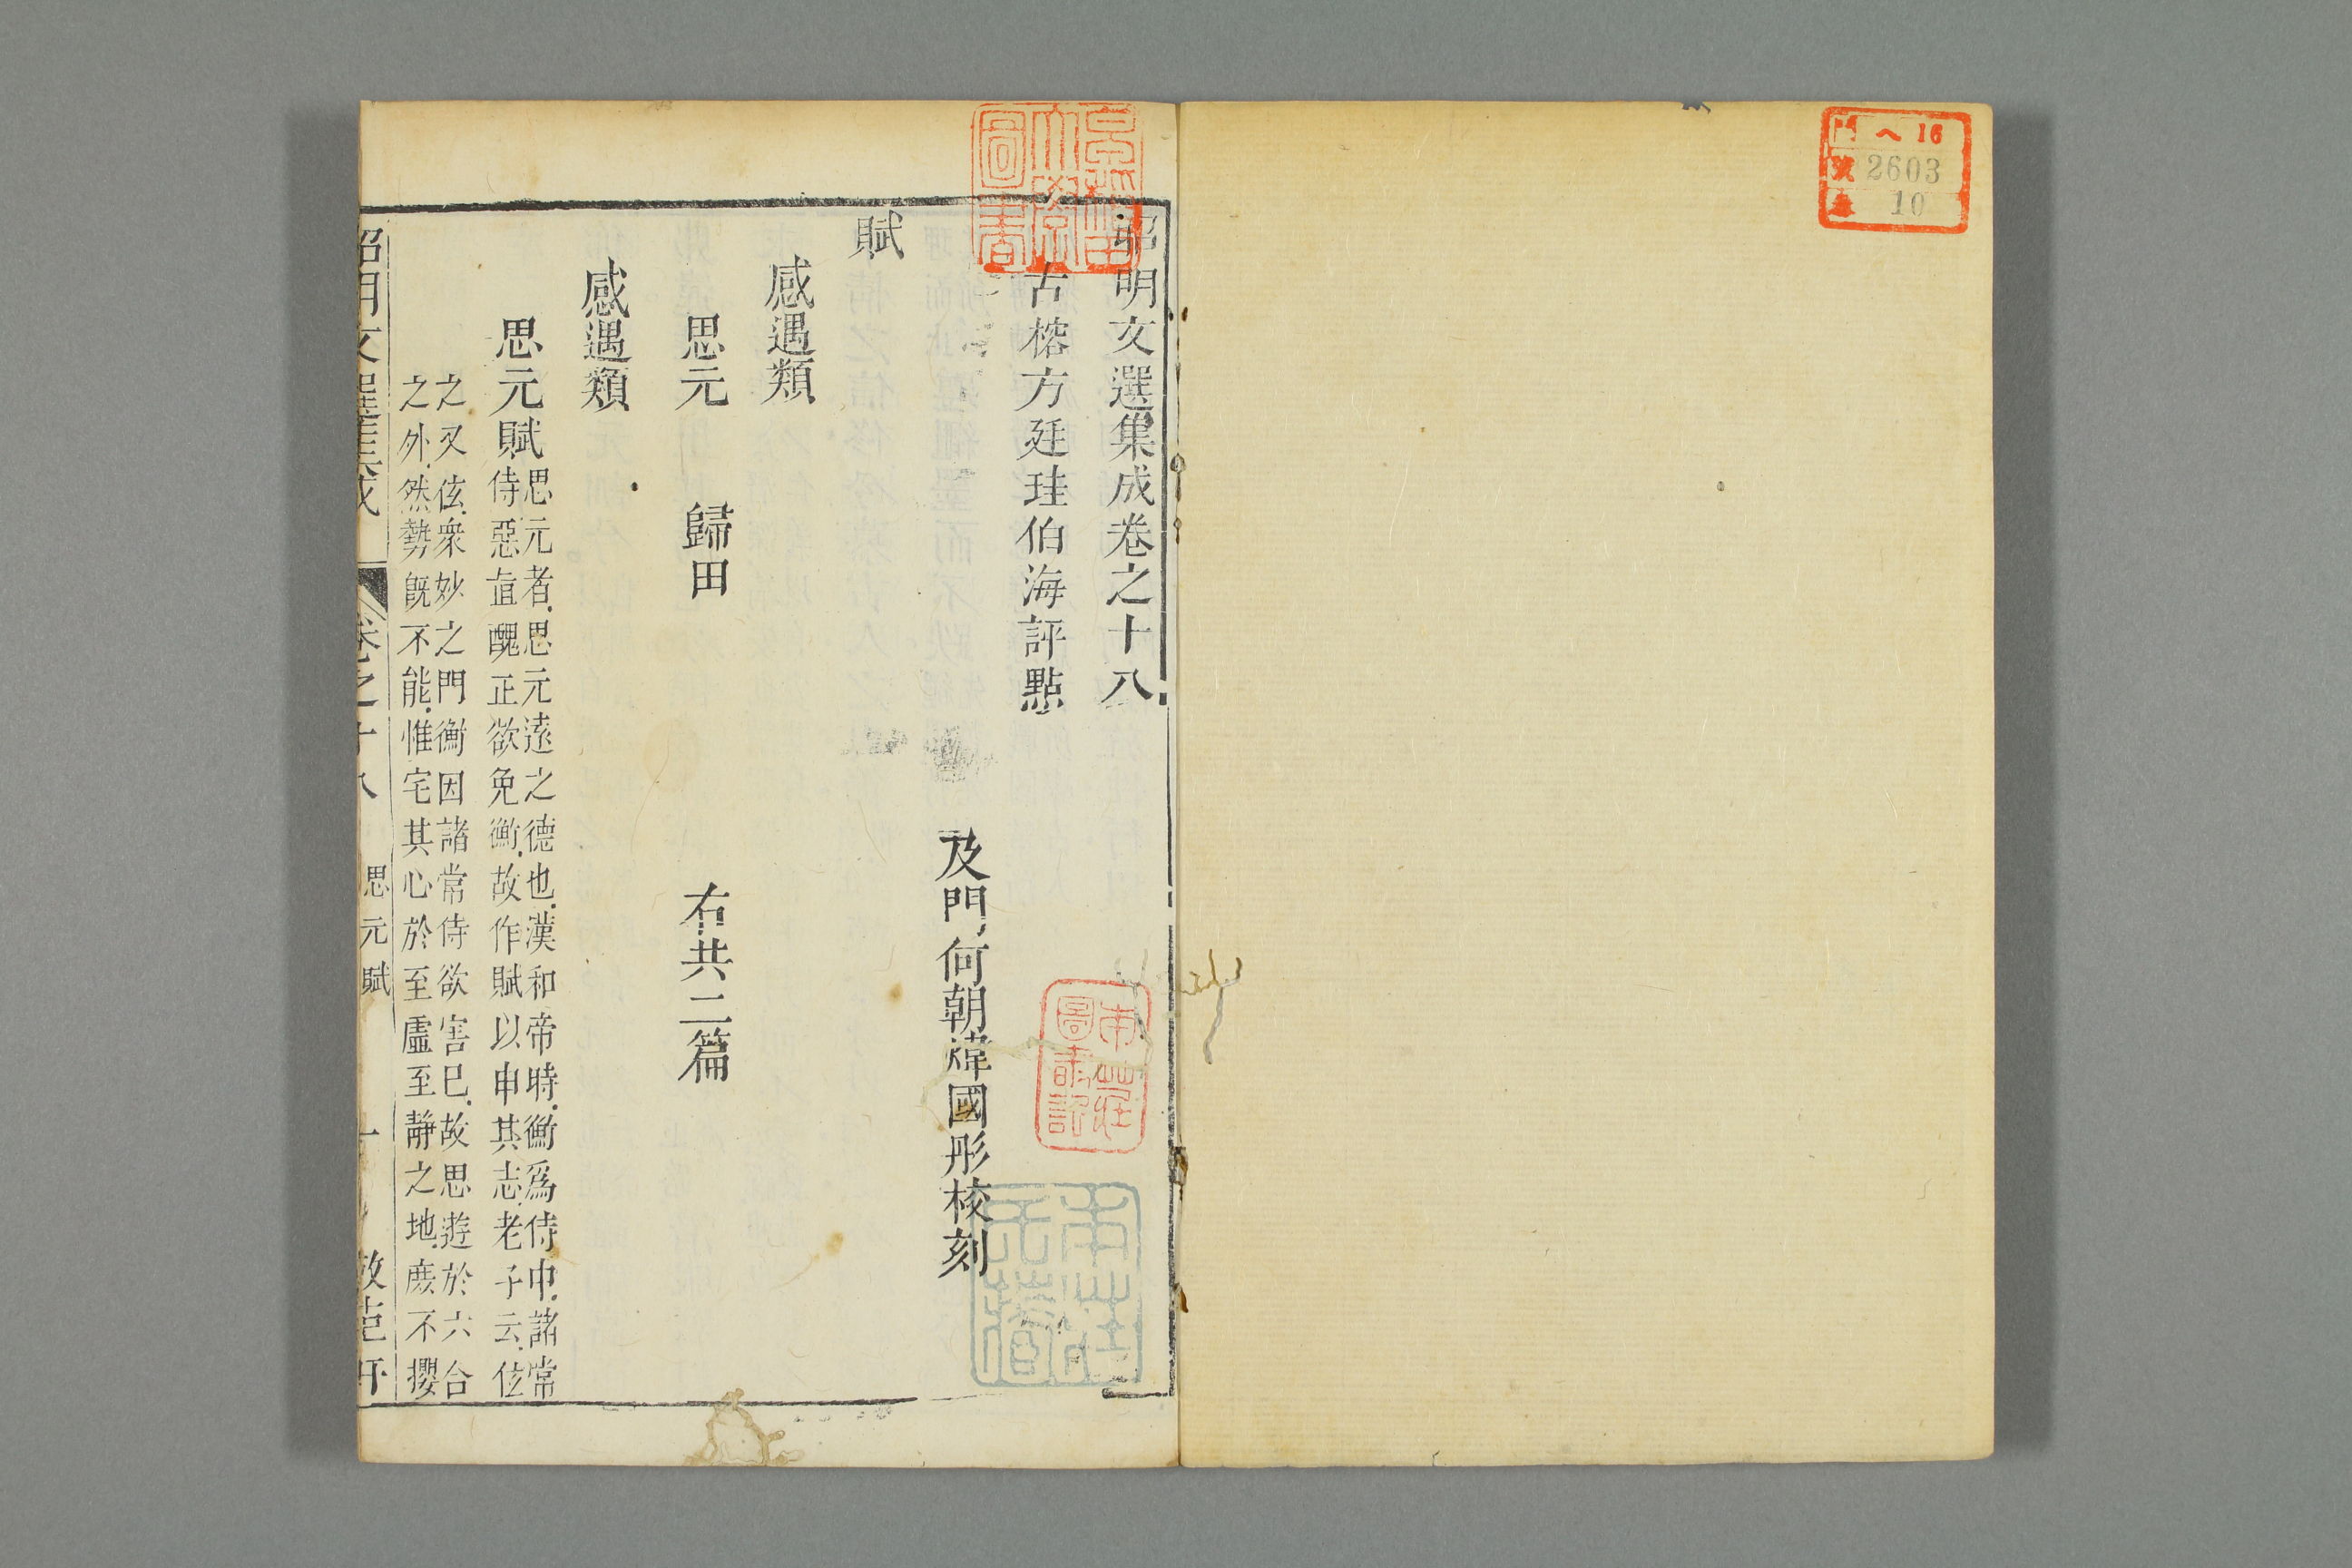 門 ヘ 16
號 2603
卷 10
昭明文選集成卷之十八
古榕方廷珪伯海評點
及門何朝煒國彤校刻
賦
感遇類
思元 歸田 右共二篇
感遇類
思元賦思元者思元遠之德也漢和帝時衡爲侍中諸常
侍惡直醜正欲免衡故作賦以申其志老子云伭
之又伭衆妙之門衡因諸常侍欲害巳故思遊於六合
之外然勢既不能惟宅其心於至虛至靜之地庶不攖
昭明文選集成 卷之十八 思元賦 一
圖書記